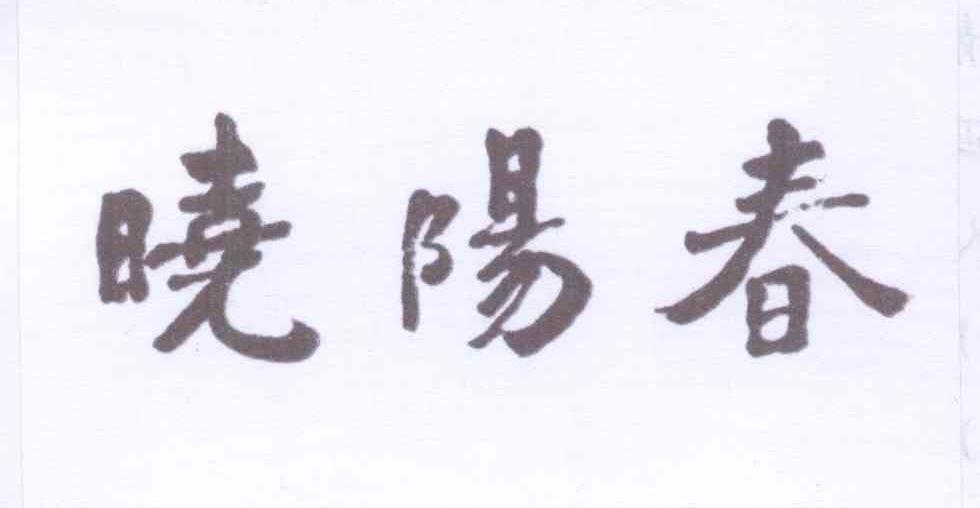 春陽曉